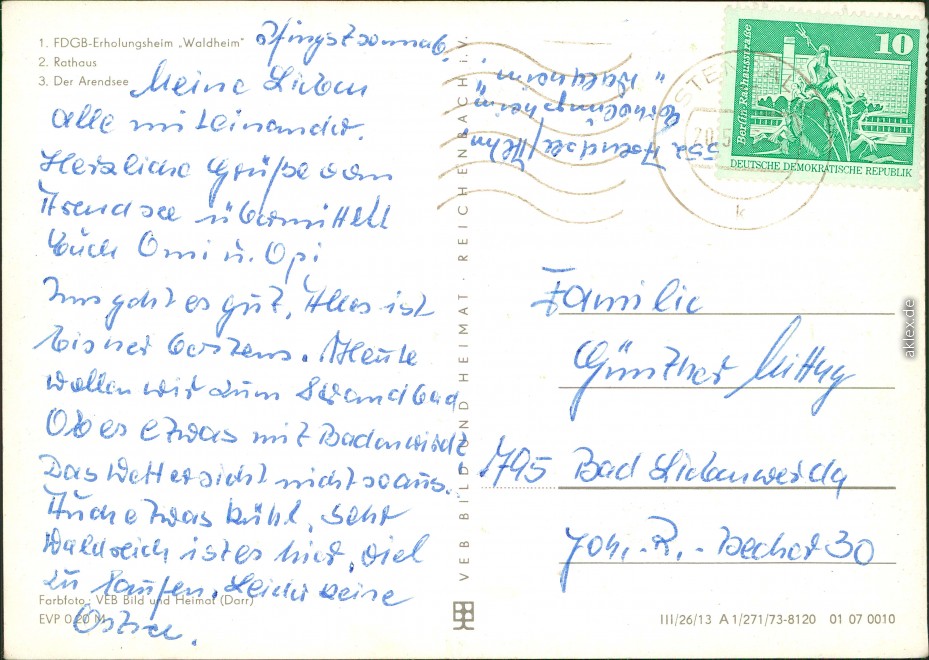 1. FDGB-Erholungsheim „Waldheim“
2. Rathaus
3. Der Arendsee
Pfingstsonnab.
Meine Lieben
alle miteinander.
Herzliche Grüße vom
Arendsee übermittelt
Euch Omi u. Opi
Uns geht es gut, Alles ist
bisher bestens. Heute
wollen wir zum Strandbad
Ob es etwas mit Baden wird?
Das Wetter sieht nicht so aus.
Auch etwas kühl. Sehr
Waldreich ist es hier, viel
zu laufen. Leider keine
Ostsee.
Farbfoto: VEB Bild und Heimat (Darr)
EVP 0,20 M
VEB BILD UND HEIMAT · REICHENBACH i. V.
3552 Arendsee/Altm
Erholungsheim
"Waldheim"
10
Berlin, Rathausstraße
DEUTSCHE DEMOKRATISCHE REPUBLIK
k
Familie
Günther
795 Bad Liebenwerda
Joh.-R.-Becher 30
III/26/13 A 1/271/73-8120 01 07 0010
aklex.de